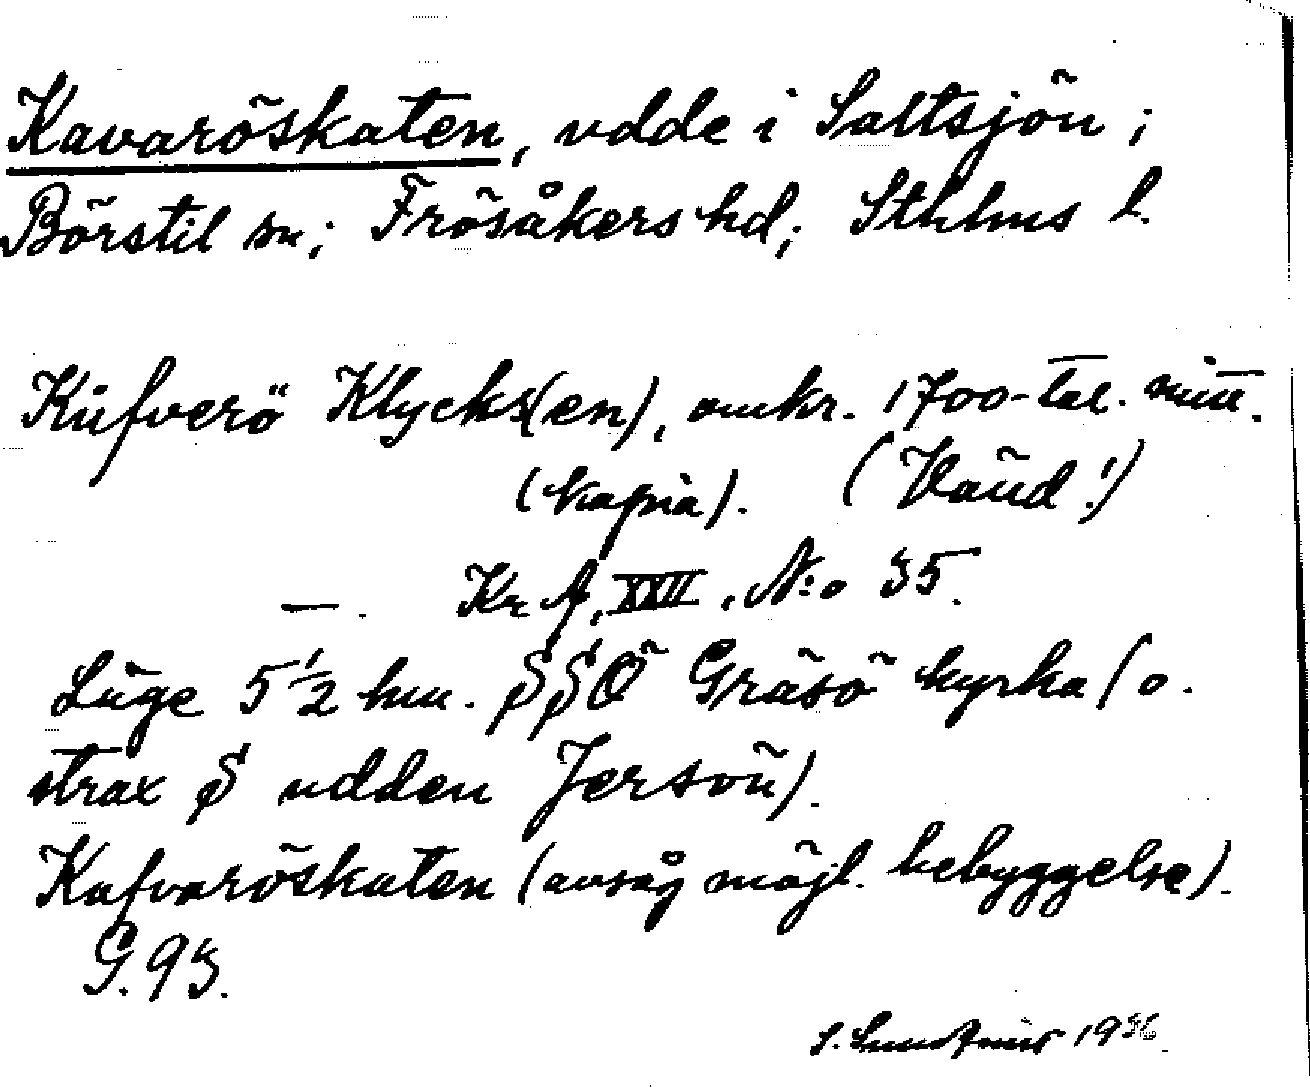 Kavaröskaten, udde i Saltsjön;
Börstil sn; Frösåkers hd; Sthlms l.
Kufverö Klycks(en), omkr. 1700-tal. mitt.
(kopia). (Vänd!)
—. Kr. A, XXII, N:o 35.
Läge 5 1/2 km. SSÖ Gräsö kyrka (o.
strax S udden Jersön).
Kafvaröskaten (avsåg möjl. bebyggelse).
G. 93.
S. 1936